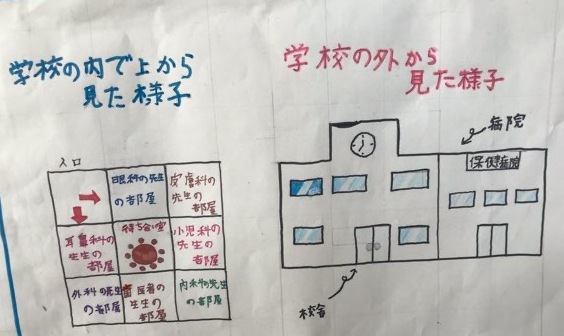 学校の内で上から
見た様子
入口
眼科の先生
の部屋
皮膚科の
先生の
部屋
耳鼻科の
先生の
部屋
待ち合い室
小児科の
先生の
部屋
外科の先生
の部屋
歯医者の
先生の
部屋
内科の先生
の部屋
学校の外から
見た様子
病院
保健病院
校舎